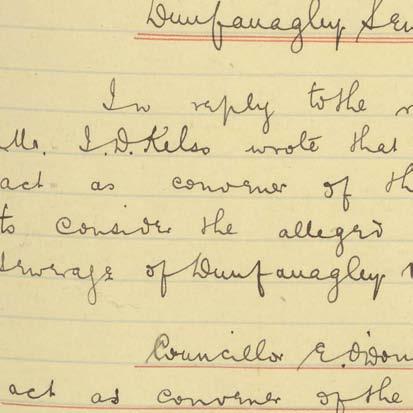 Dunfanaghy Sew
In reply to the
Mr. I. D. Kelso wrote that
act as convener of th
to consider the alleged
sewerage of Dunfanaghy
Councillor E. O'Don
act as convener of the